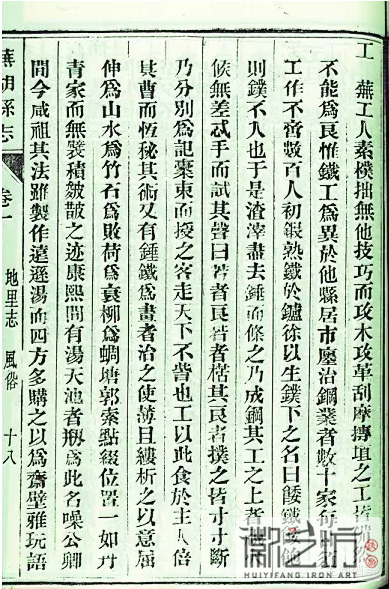 工 蕪工人素樸拙無他技巧而攻木攻革刮摩摶埴之工皆備然
不能為良惟鐵工為異於他縣居市廛冶鋼業者數十家每日
工作不啻數百人初鍜熟鐵於鑪徐以生鏷下之名曰餧鐵餧飽
則鏷不入也于是渣滓盡去錘而條之乃成鋼其工之上者
候無差忒手而試其聲曰若者良若者楛其良者撲之皆寸寸斷
乃分別為記橐束而授之客走天下不訾也工以此食於主人倍
其曹而恆秘其術又有錘鐵為畫者冶之使薄且縷析之以意屈
伸為山水為竹石為敗荷為衰柳為蜩螗郭索點綴位置一如丹
青家而無襞積皴皵之迹康熙間有湯天池者剏為此名噪公卿
間今咸祖其法雖製作遠遜湯而四方多購之以為齋壁雅玩語
蕪湖縣志
卷一
地里志 風俗
十八
徽之坊
HUIYIFANG IRON ART